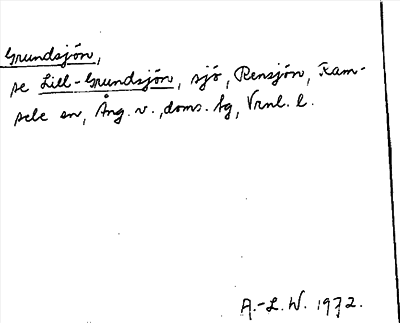 Grundsjön,
se Lill-Grundsjön, sjö, Rensjön, Ram-
sele sn, Ång. v., doms. hg, Vrnl. l.
A.-L. W. 1972.